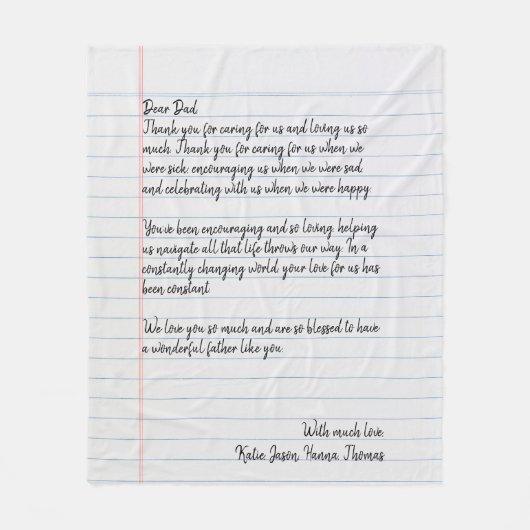 Dear Dad,
Thank you for caring for us and loving us so
much. Thank you for caring for us when we
were sick, encouraging us when we were sad
and celebrating with us when we were happy.
You've been encouraging and so loving, helping
us navigate all that life throws our way. In a
constantly changing world, your love for us has
been constant.
We love you so much and are so blessed to have
a wonderful father like you.
With much love,
Katie, Jason, Hanna, Thomas